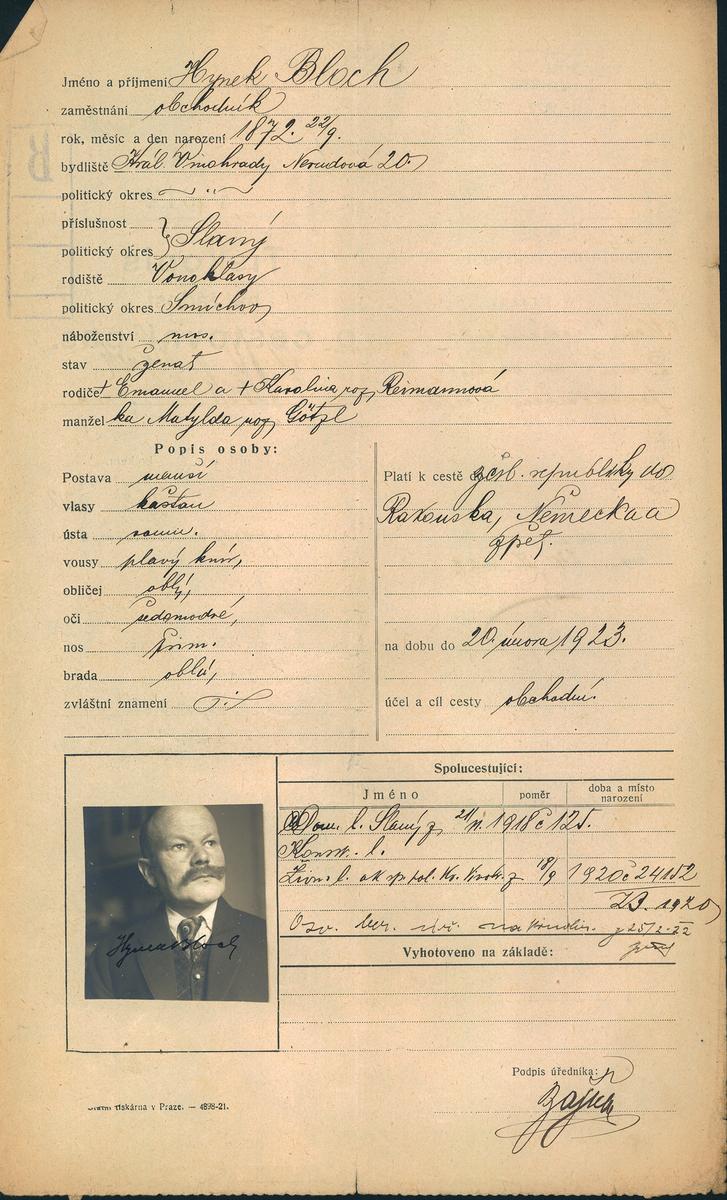 Jméno a příjmení Hynek Bloch
zaměstnání obchodník
rok, měsíc a den narození 1872. 22/9.
bydliště Král. Vinohrady Nerudová 20.
politický okres — „ —
příslušnost
politický okres } Slaný
rodiště Vonoklasy
politický okres Smíchov
náboženství mos.
stav ženat
rodiče † Emanuel a † Karolina roz. Reimannová
manžel ka Matylda roz. Götzl
Popis osoby:
Postava menší
vlasy kaštan
ústa
vousy plavý knír,
obličej oblý,
oči šedomodré,
nos přim.
brada oblá,
zvláštní znamení
Platí k cestě do čsl. republiky do
Rakouska, Německa a
zpět.
na dobu do 20. února 1923.
účel a cíl cesty obchodní.
Spolucestující:
Jméno poměr doba a místo narození
Dom. l. Slaný z 1918 č 125.
Konst. l.
Živn. l. z 18/9 1920 č 24152
1920
z 25/2 22
Vyhotoveno na základě:
Hynek Bloch
Podpis úředníka:
Státní tiskárna v Praze. — 4898-21.